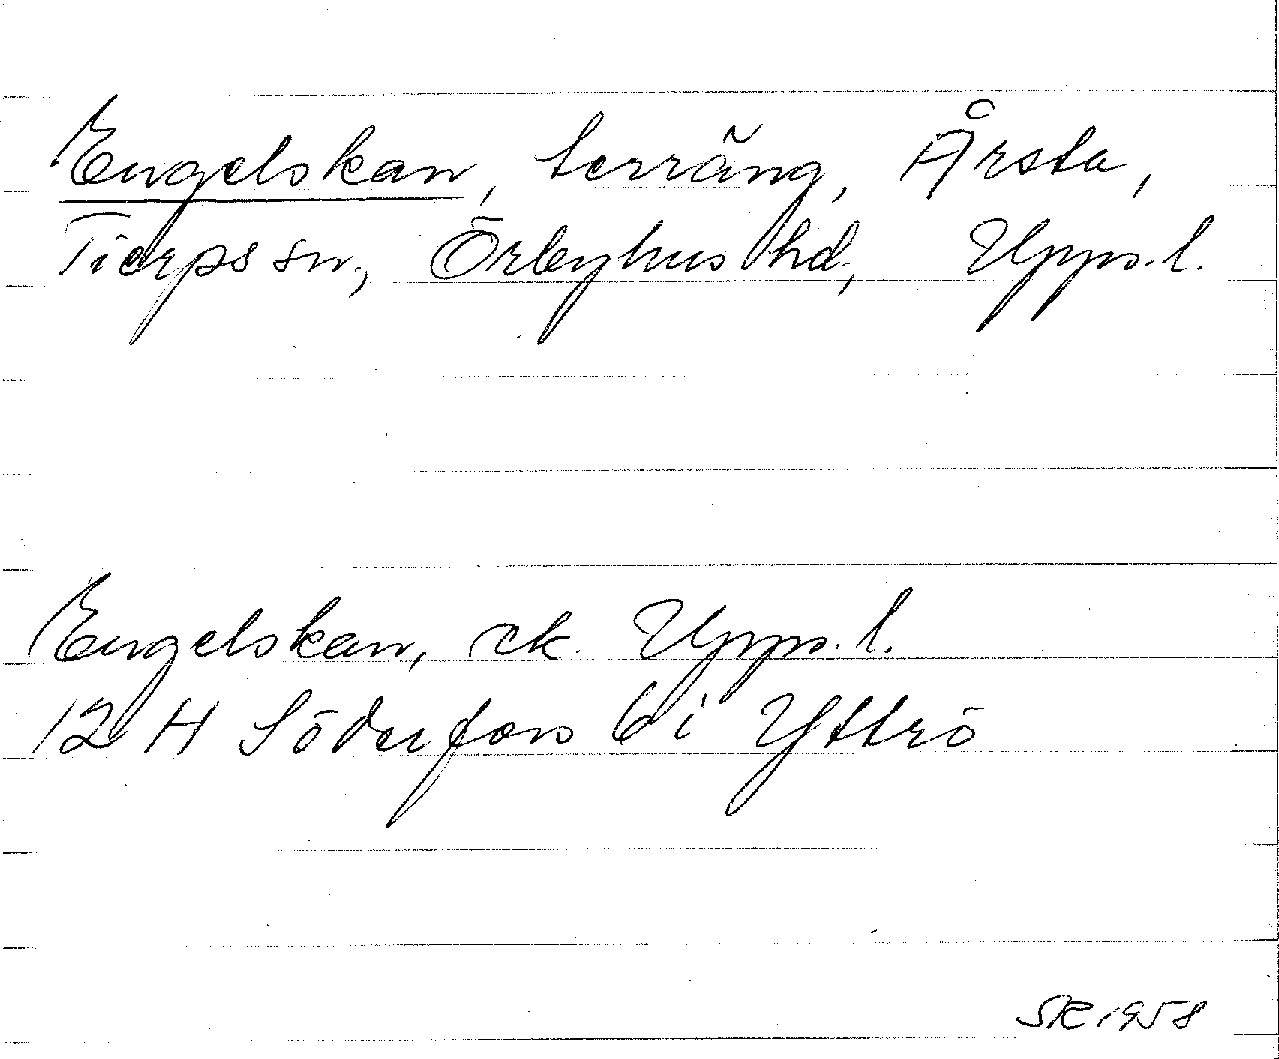 Engelskan, terräng, Årsta,
Tierps sn., Örbyhus hd, Upps.l.
Engelskan, ek. Upps. l.
12 H Söderfors 6 i Yttrö
SR 1958